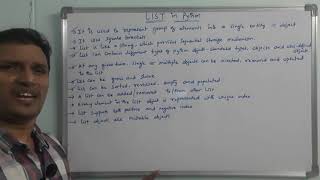 LIST in Python
→ It is used to represent group of elements into a single entity or object
→ It uses square brackets
→ List is like a string, which provides sequential storage mechanism.
→ List can contain different types of python object- standard types, objects and user defined object
→ At any given time, single or multiple objects can be inserted, removed and updated to the list
→ List can be grows and shrink
→ List can be sorted, reversed, empty and populated
→ A list can be added/removed to/from other list
→ Every element in the list object is represented with unique index
→ List support both positive and negative index
→ List objects are mutable objects